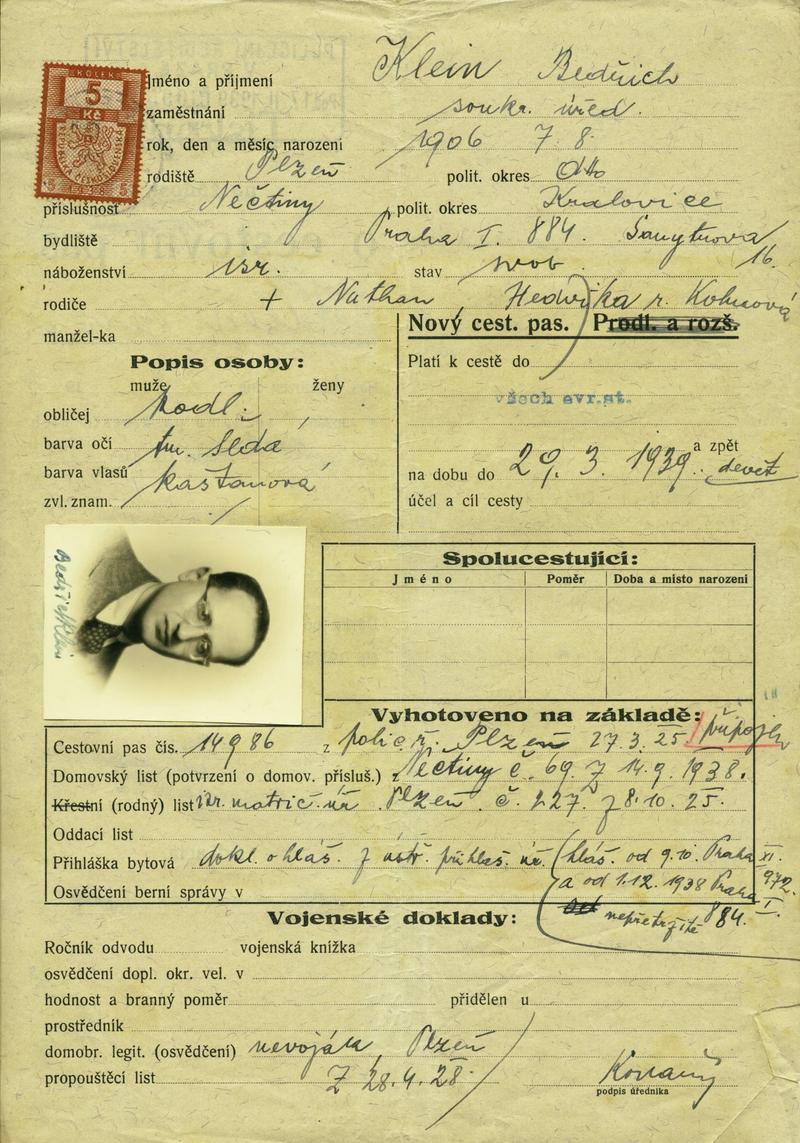 KOLEK
5
Kč
Jméno a příjmení Klein Bedřich
zaměstnání soukr. úřed.
rok, den a měsíc narození 1906 7 8.
rodiště Plzeň polit. okres dtto
příslušnost Nečtiny polit. okres Kralovice
bydliště Praha I. 884.
16.
náboženství isr. stav svob
rodiče + Nathan, Hedvika r. Kohnová
manžel-ka
Nový cest. pas. Prodl. a rozš.
Popis osoby:
muže ženy
Platí k cestě do
všech evr.st.
obličej podl.
barva očí tm. šedá
barva vlasů kaštanová
zvl. znam.
a zpět
na dobu do 29. 3. 1939. devět
účel a cíl cesty
Bedřich Klein
Spolucestující:
Jméno Poměr Doba a místo narození
Vyhotoveno na základě:
připojen
Cestovní pas čís. 14986 z polic ř. Plzeň 27.3.25
Domovský list (potvrzení o domov. přísluš.) z Nečtiny č. 69 z 14.9.1938.
Křestní (rodný) list izr. matrič. úř. Plzeň. č. 227. z 8.10.25.
Oddací list
Přihláška bytová dokl. o hláš. z ústř. přihlaš. úř. (hláš. od 9.10. Praha XI.
972.
a od 1.12.1938 Praha I.
Osvědčení berní správy v
nepřetržitě 884.
Vojenské doklady:
Ročník odvodu vojenská knížka
osvědčení dopl. okr. vel. v
hodnost a branný poměr přidělen u
prostředník
domobr. legit. (osvědčení) nevoják, Plzeň
propouštěcí list z 28.4.28
podpis úředníka